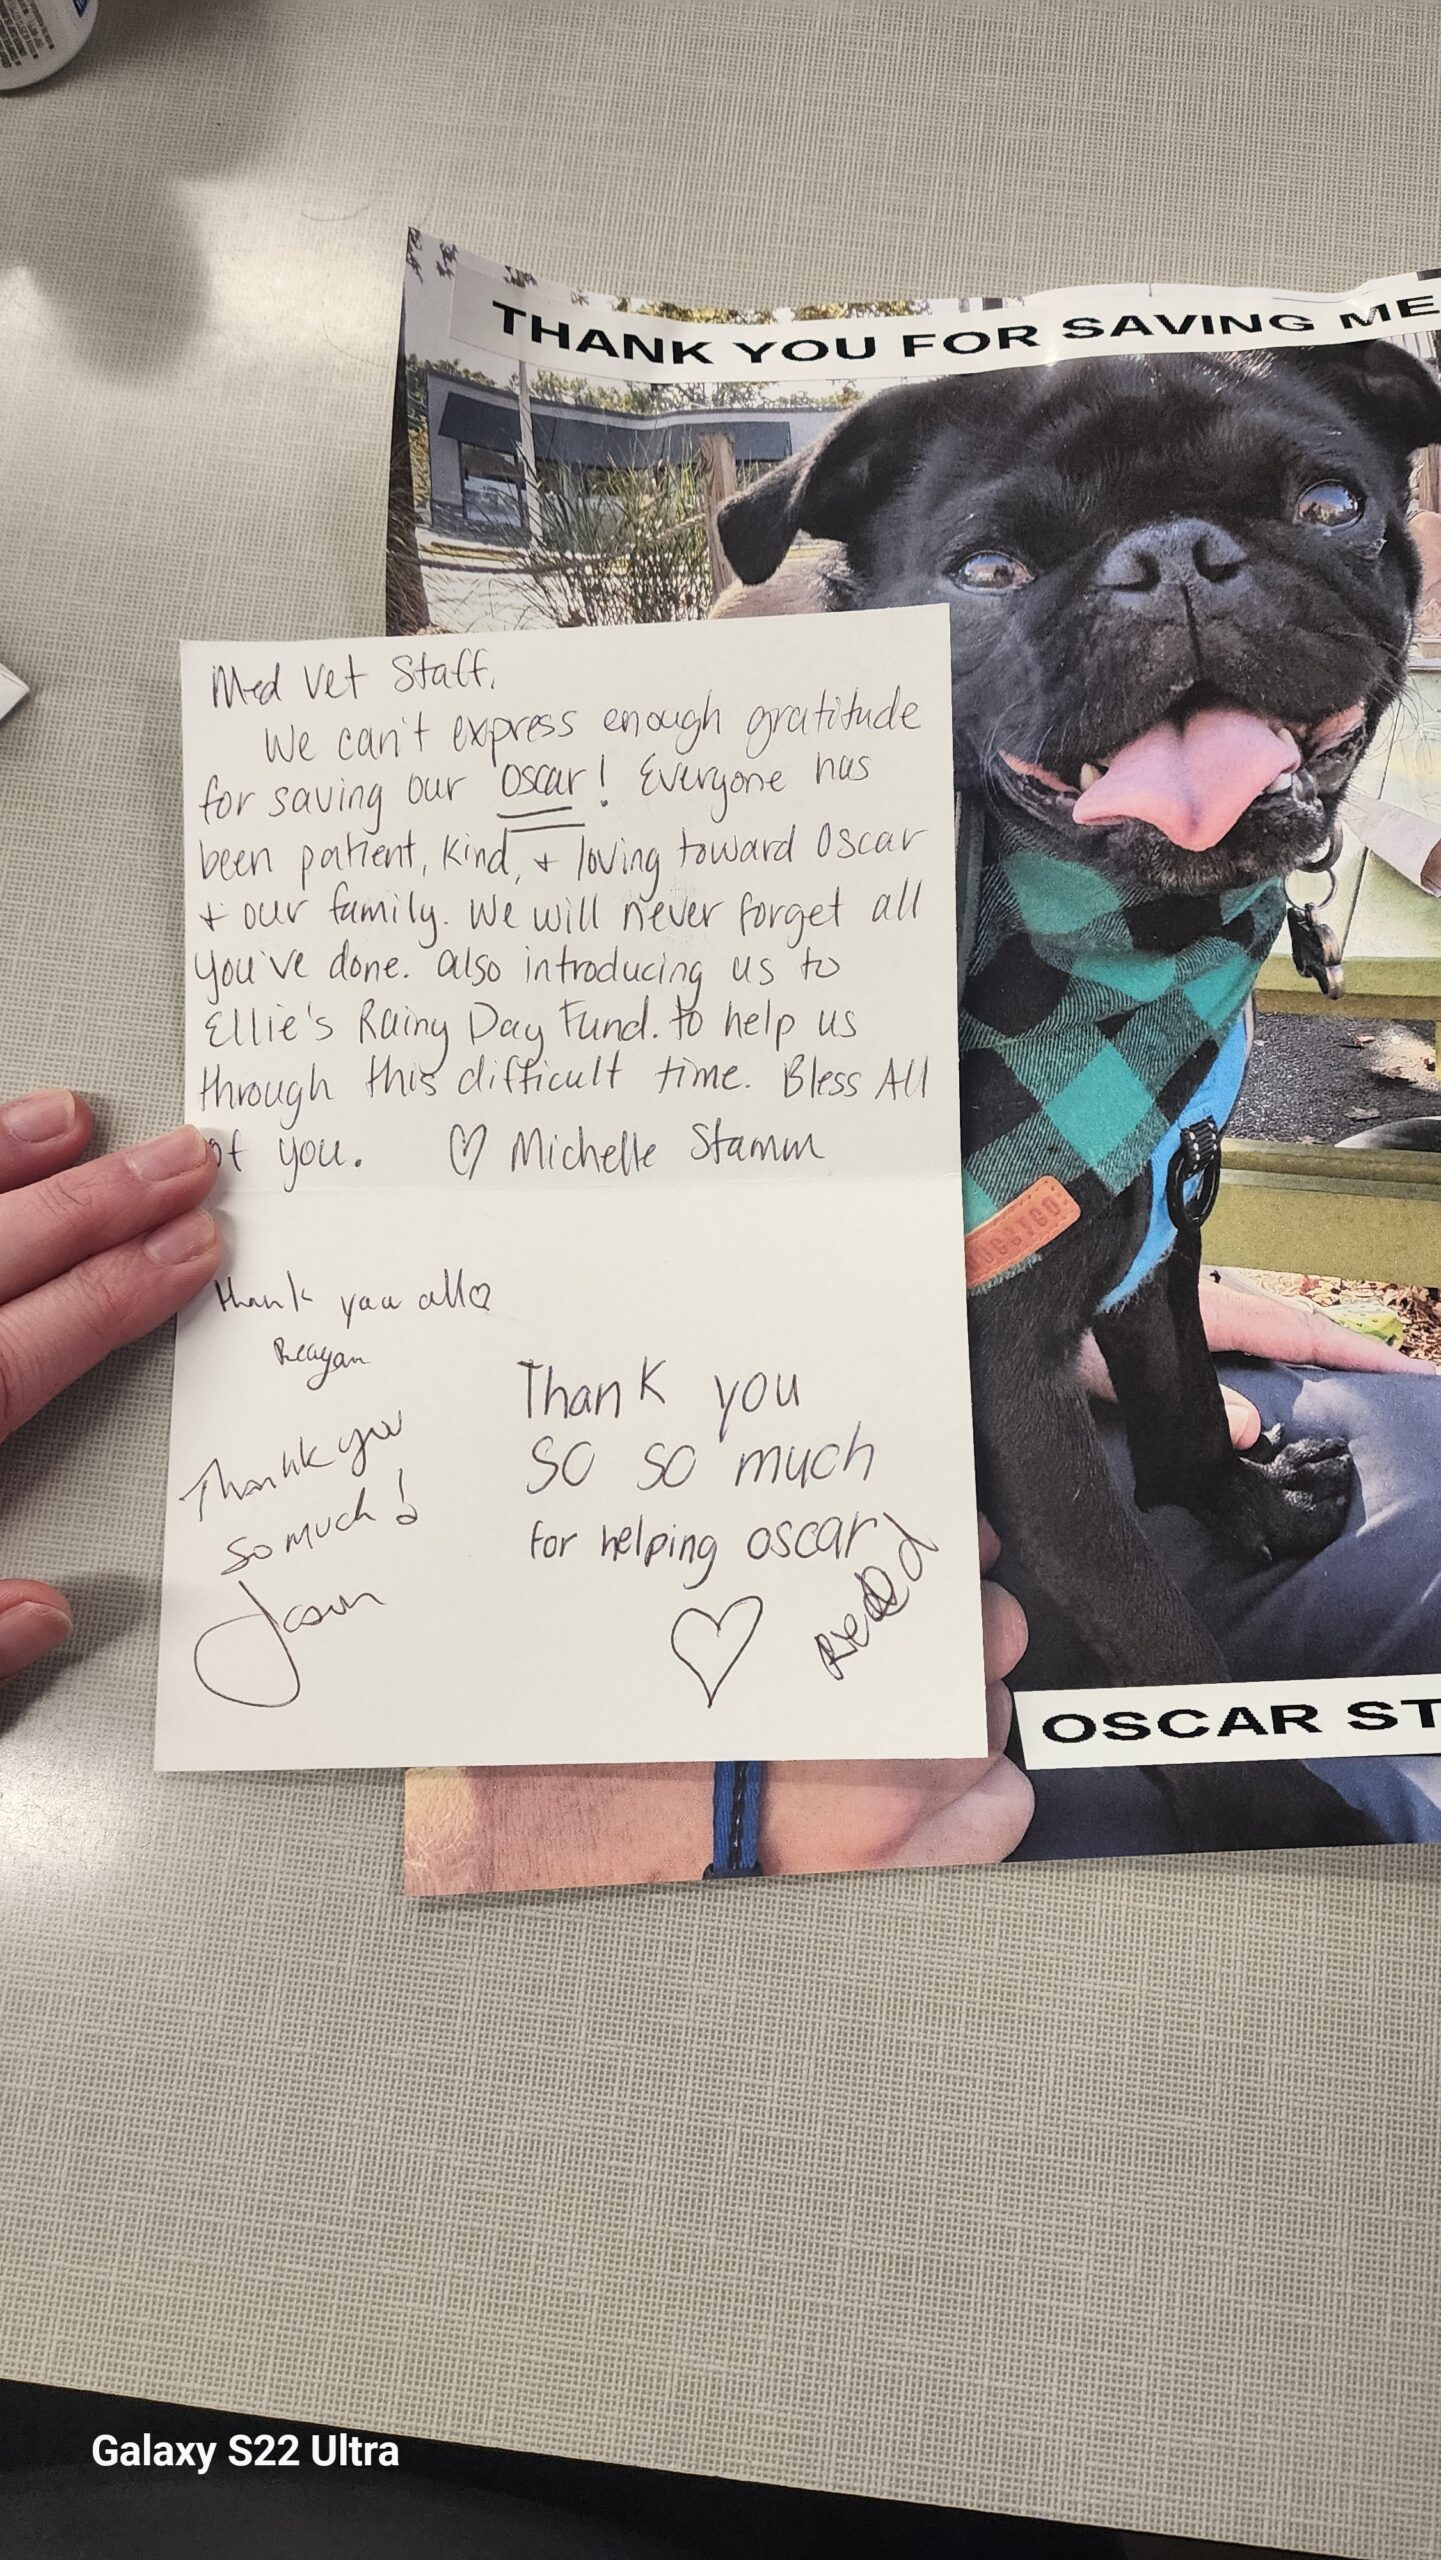 THANK YOU FOR SAVING ME
Med Vet Staff,
We can't express enough gratitude
for saving our Oscar! Everyone has
been patient, kind, + loving toward Oscar
+ our family. We will never forget all
you've done. also introducing us to
Ellie's Rainy Day Fund. to help us
through this difficult time. Bless All
of you. ♡ Michelle Stamm
Thank you all♡
Reagan
Thank you
so much!
Jason
Thank you
so so much
for helping oscar
♡ Reed
OSCAR ST
Galaxy S22 Ultra